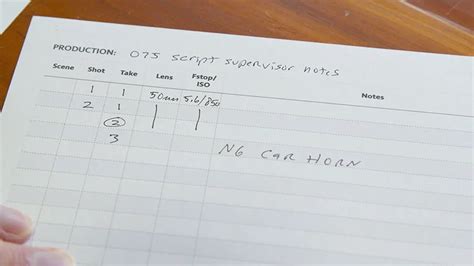 PRODUCTION: 075 script supervisor notes
Scene Shot Take Lens Fstop/ISO Notes
1 1 50mm 5.6/850
2 1
2
3 NG CAR HORN